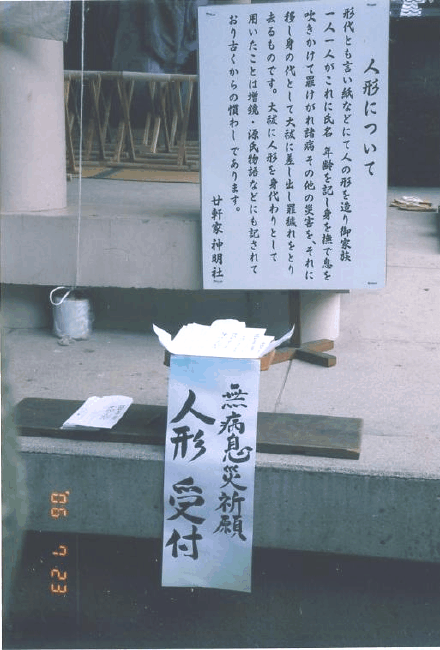 人形について
形代とも言い紙などにて人の形を造り御家族
一人一人がこれに氏名 年齢を記し身を撫で息を
吹きかけて罪けがれ諸病 その他の災害を、それに
移し身の代として大祓に差し出し罪穢れをとり
去るものです。大祓に人形を身代わりとして
用いたことは増鏡・源氏物語などにも記されて
おり古くからの慣わしであります。
廿軒家 神明社
無病息災祈願
人形 受付
'06 7 23